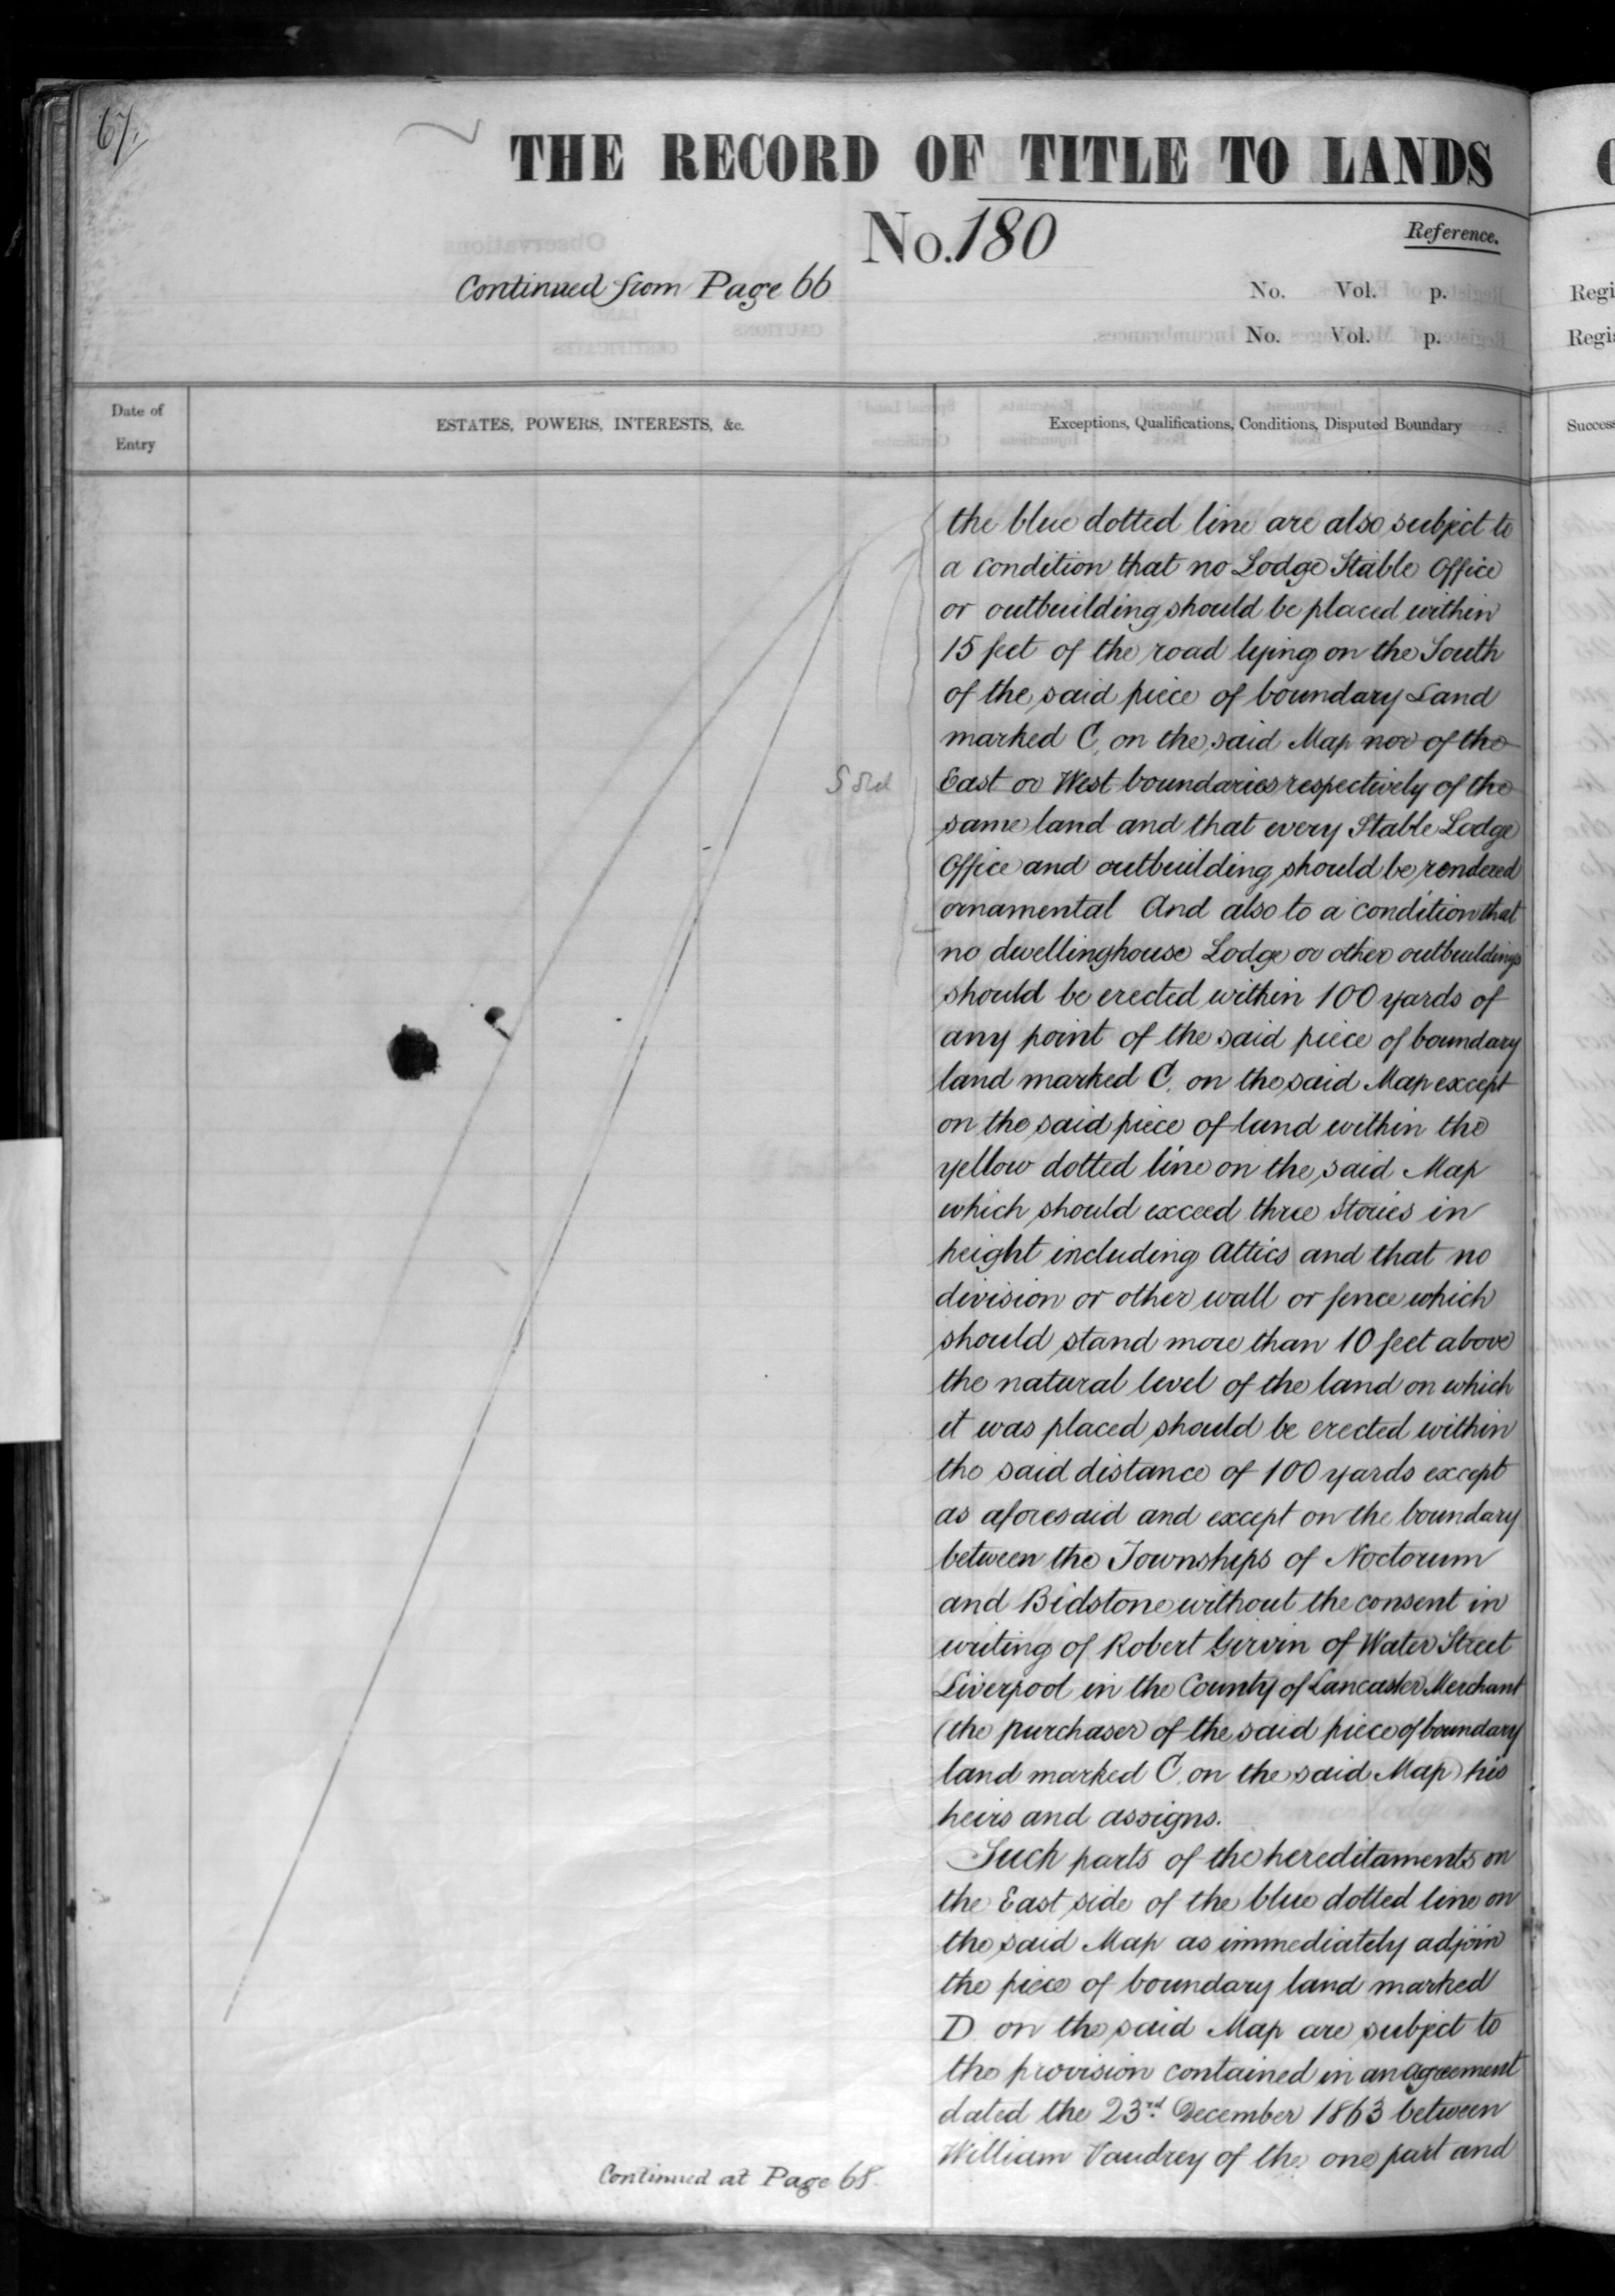 67.
THE RECORD OF TITLE TO LANDS
No. 180
Reference.
Continued from Page 66
No. Vol. p.
No. Vol. p.
Regi
Regis
Date of
Entry
ESTATES, POWERS, INTERESTS, &c.
Exceptions, Qualifications, Conditions, Disputed Boundary
Success
the blue dotted line are also subject to
a condition that no Lodge Stable Office
or outbuilding should be placed within
15 feet of the road lying on the South
of the said piece of boundary Land
marked C. on the said Map nor of the
East or West boundaries respectively of the
same land and that every Stable Lodge
Office and outbuilding should be rendered
ornamental And also to a condition that
no dwellinghouse Lodge or other outbuildings
should be erected within 100 yards of
any point of the said piece of boundary
land marked C. on the said Map except
on the said piece of land within the
yellow dotted line on the said Map
which should exceed three Stories in
height including Attics and that no
division or other wall or fence which
should stand more than 10 feet above
the natural level of the land on which
it was placed should be erected within
the said distance of 100 yards except
as aforesaid and except on the boundary
between the Townships of Noctorum
and Bidstone without the consent in
writing of Robert Girvin of Water Street
Liverpool in the County of Lancaster Merchant
(the purchaser of the said piece of boundary
land marked C. on the said Map) his
heirs and assigns.
Such parts of the hereditaments on
the East side of the blue dotted line on
the said Map as immediately adjoin
the piece of boundary land marked
D on the said Map are subject to
the provision contained in an agreement
dated the 23rd December 1863 between
William Vaudrey of the one part and
Continued at Page 68.